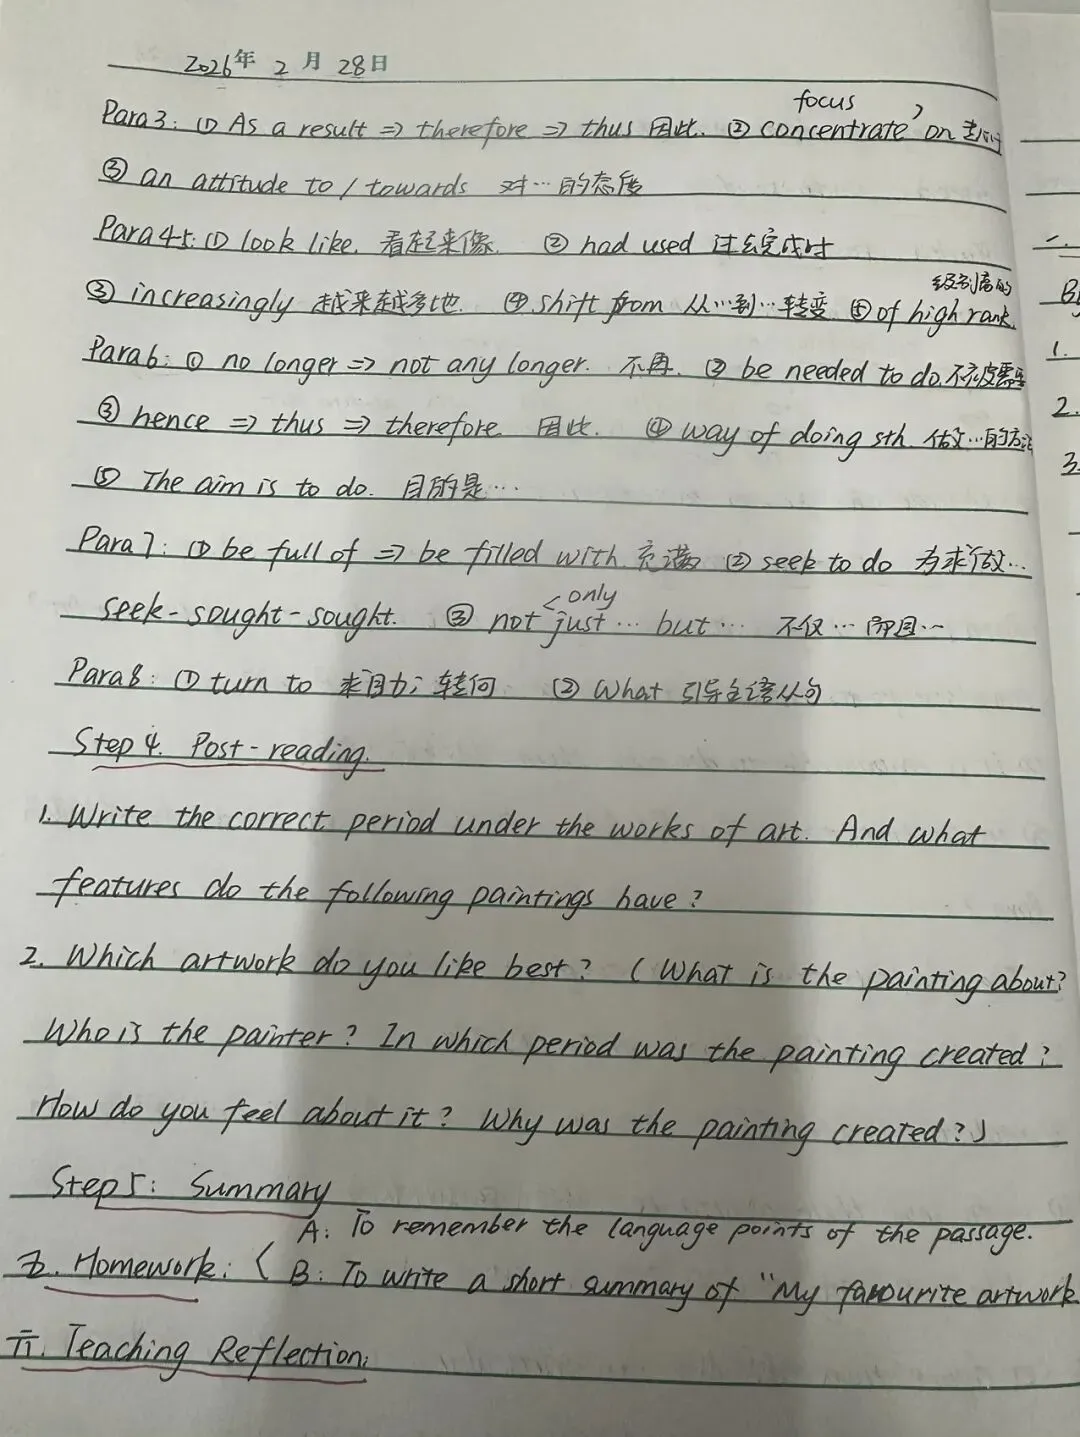 2026年 2 月 28日
focus
Para3: ① As a result => therefore => thus 因此. ② concentrate on 专心于
③ an attitude to / towards 对…的态度
Para 4-5: ① look like. 看起来像. ② had used 过去完成时
级别高的
③ increasingly 越来越多地. ④ shift from 从…到…转变 ⑤ of high rank.
Para6: ① no longer => not any longer. 不再. ② be needed to do.
③ hence => thus => therefore. 因此. ④ way of doing sth. 做…的方法
⑤ The aim is to do. 目的是…
Para 7: ① be full of => be filled with. 充满 ② seek to do 寻求做…
only
seek-sought-sought. ③ not just … but … 不仅…而且…
Para8: ① turn to 求助; 转向 ② What 引导主语从句
Step 4. Post-reading.
1. Write the correct period under the works of art. And what
features do the following paintings have?
2. Which artwork do you like best? (What is the painting about?
Who is the painter? In which period was the painting created?
How do you feel about it? Why was the painting created?)
Step5: Summary
A: To remember the language points of the passage.
五. Homework:
B: To write a short summary of "My favourite artwork
六. Teaching Reflection: